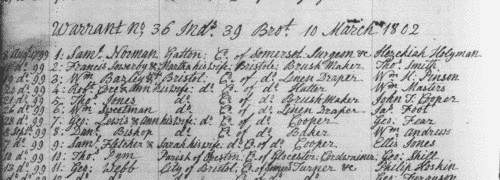 Warrant No. 36 Indx. 39 Brot. 10 March 1802
Augt. 99 1: Saml. Norman Yatton Co. of Somerset Surgeon & Hezekiah Holyman
do. 99 2: Francis & Martha his wife Bristol Brush Maker Thos. Smith
do. 99 3: Wm. Bazley Bristol Co. of do. Linen Draper Wm. K. Pinson
do. 99 4: Robt. & Ann his wife do. Co. of do. Hatter Wm. Masters
do. 99 5: Thos. Jones do. Co. of do. Brush Maker John T. Cooper
do. 99 6: Wm. do. Co. of do. Linen Draper Jas. Foot
do. 99 7: Geo: Lewis & Ann his wife do. Co. of do. Cooper Geo: Fear
Sept. 99 8: Danl. Bishop do. Co. of do. Baker Wm. Andrews
do. 99 9: Saml. Fletcher & Sarah his wife do. Co. of do. Cooper Ellis Jones
do. 99 10: Thos. Pym Parish of Co. of Glocester Cordwainer Geo: Shill
do. 99 11: Geo: Webb City of Bristol Co. of Turner & Philip Hoskin
Geo: Ferguson